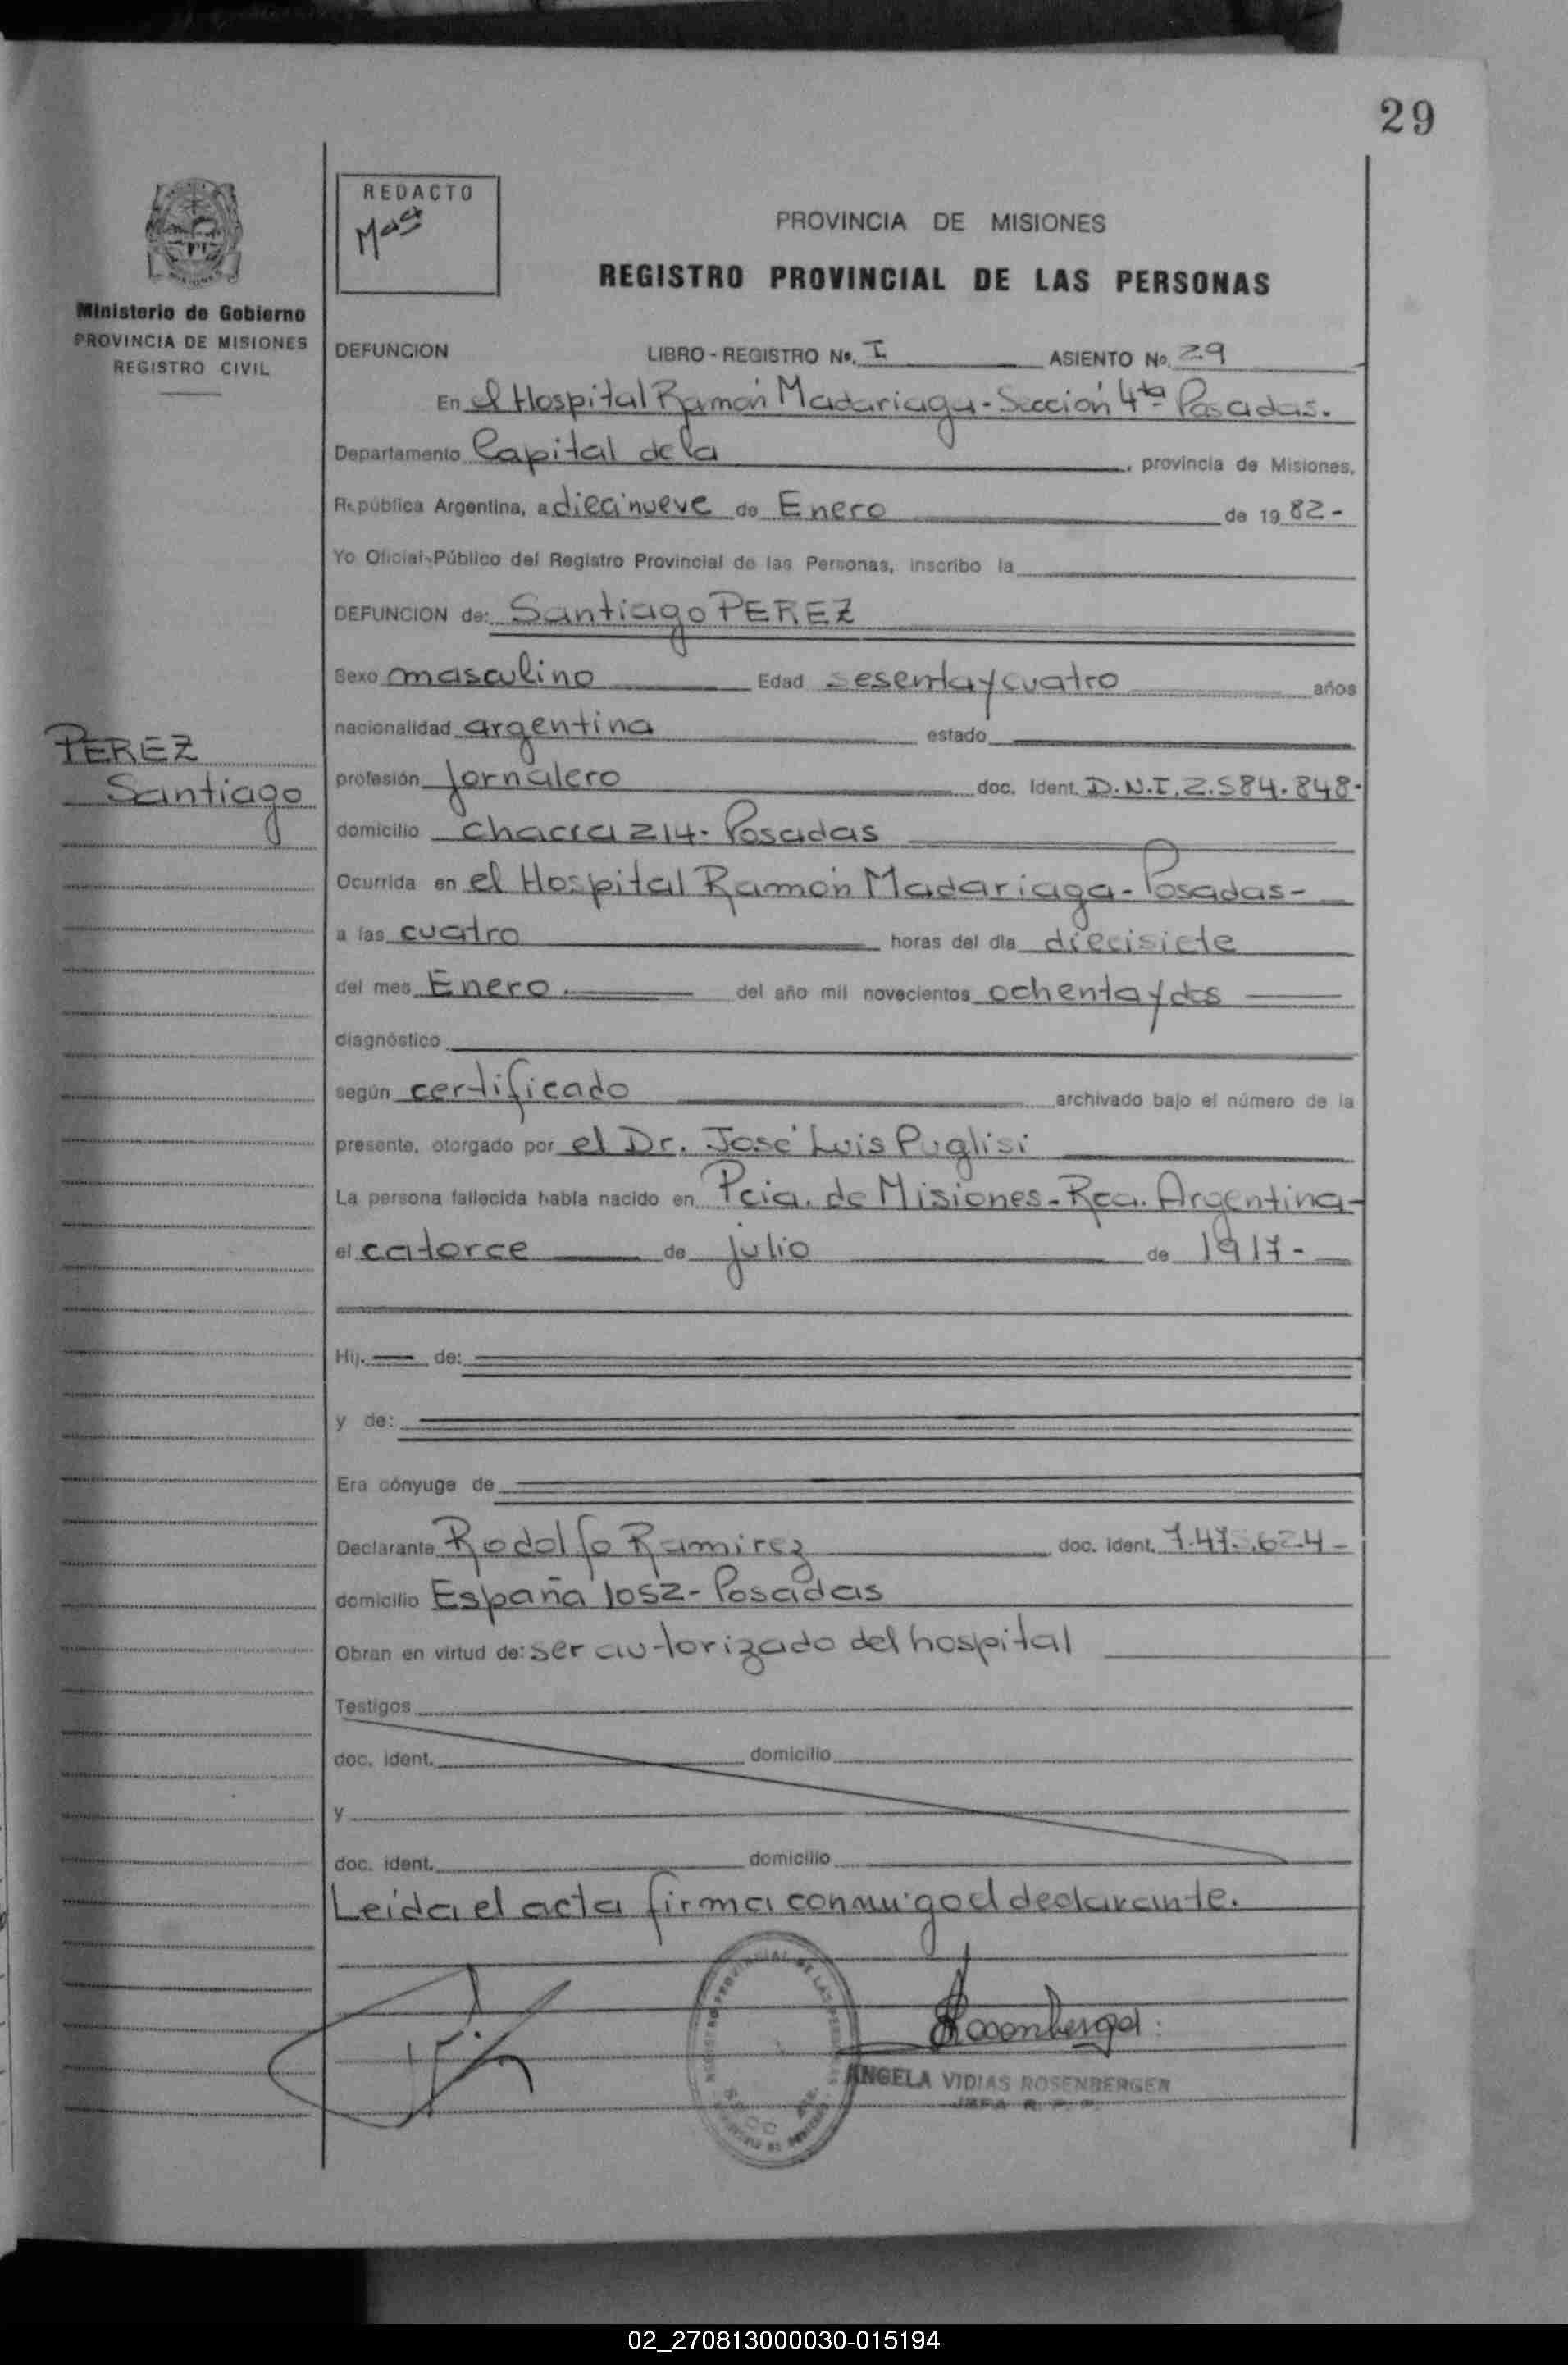 29
REDACTO
Ministerio de Gobierno
PROVINCIA DE MISIONES
REGISTRO CIVIL
PROVINCIA DE MISIONES
REGISTRO PROVINCIAL DE LAS PERSONAS
DEFUNCION LIBRO - REGISTRO Nº. I ASIENTO Nº 29
En el Hospital Ramón Madariaga - Sección 4ta Posadas.
Departamento Capital de la , provincia de Misiones,
República Argentina, a diecinueve de Enero de 19 82-
Yo Oficial Público del Registro Provincial de las Personas, inscribo la
DEFUNCION de: Santiago PEREZ
Sexo masculino Edad sesenta y cuatro años
nacionalidad argentina estado
PEREZ
Santiago
profesión Jornalero doc. Ident. D.N.I. 2.584.848-
domicilio chacra 214- Posadas
Ocurrida en el Hospital Ramón Madariaga - Posadas-
a las cuatro horas del día diecisiete
del mes Enero.- del año mil novecientos ochenta y dos
diagnóstico
según certificado archivado bajo el número de la
presente, otorgado por el Dr. José Luis Puglisi
La persona fallecida había nacido en Pcia. de Misiones - Rca. Argentina-
el catorce de julio de 1917-
Hij. de:
y de:
Era cónyuge de
Declarante Rodolfo Ramirez doc. ident.
domicilio España 1052- Posadas
Obran en virtud de: ser autorizado del hospital
Testigos
doc. ident. domicilio
y
doc. ident. domicilio
Leida el acta firma conmigo el declarante.
Rosenberger
ANGELA VIDIAS ROSENBERGER
JEFA R. P. P.
02_270813000030-015194